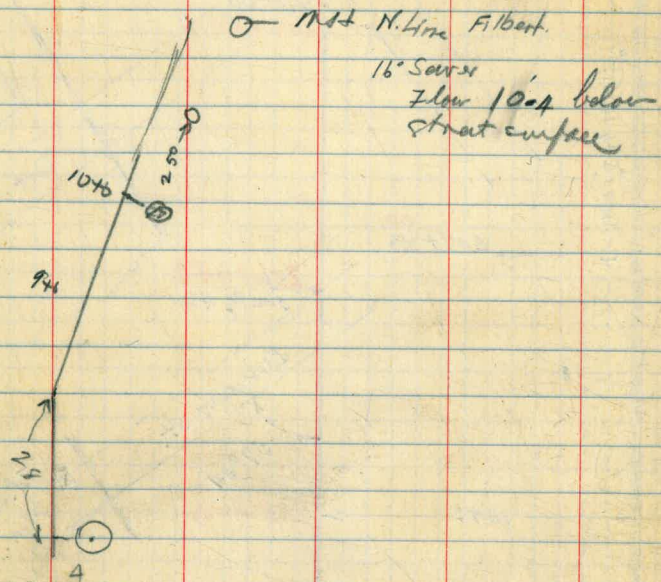 N. Line Filbert.
16" Sewer
Flow 10.4 below
street surface
250
10+0
9+6
24
4